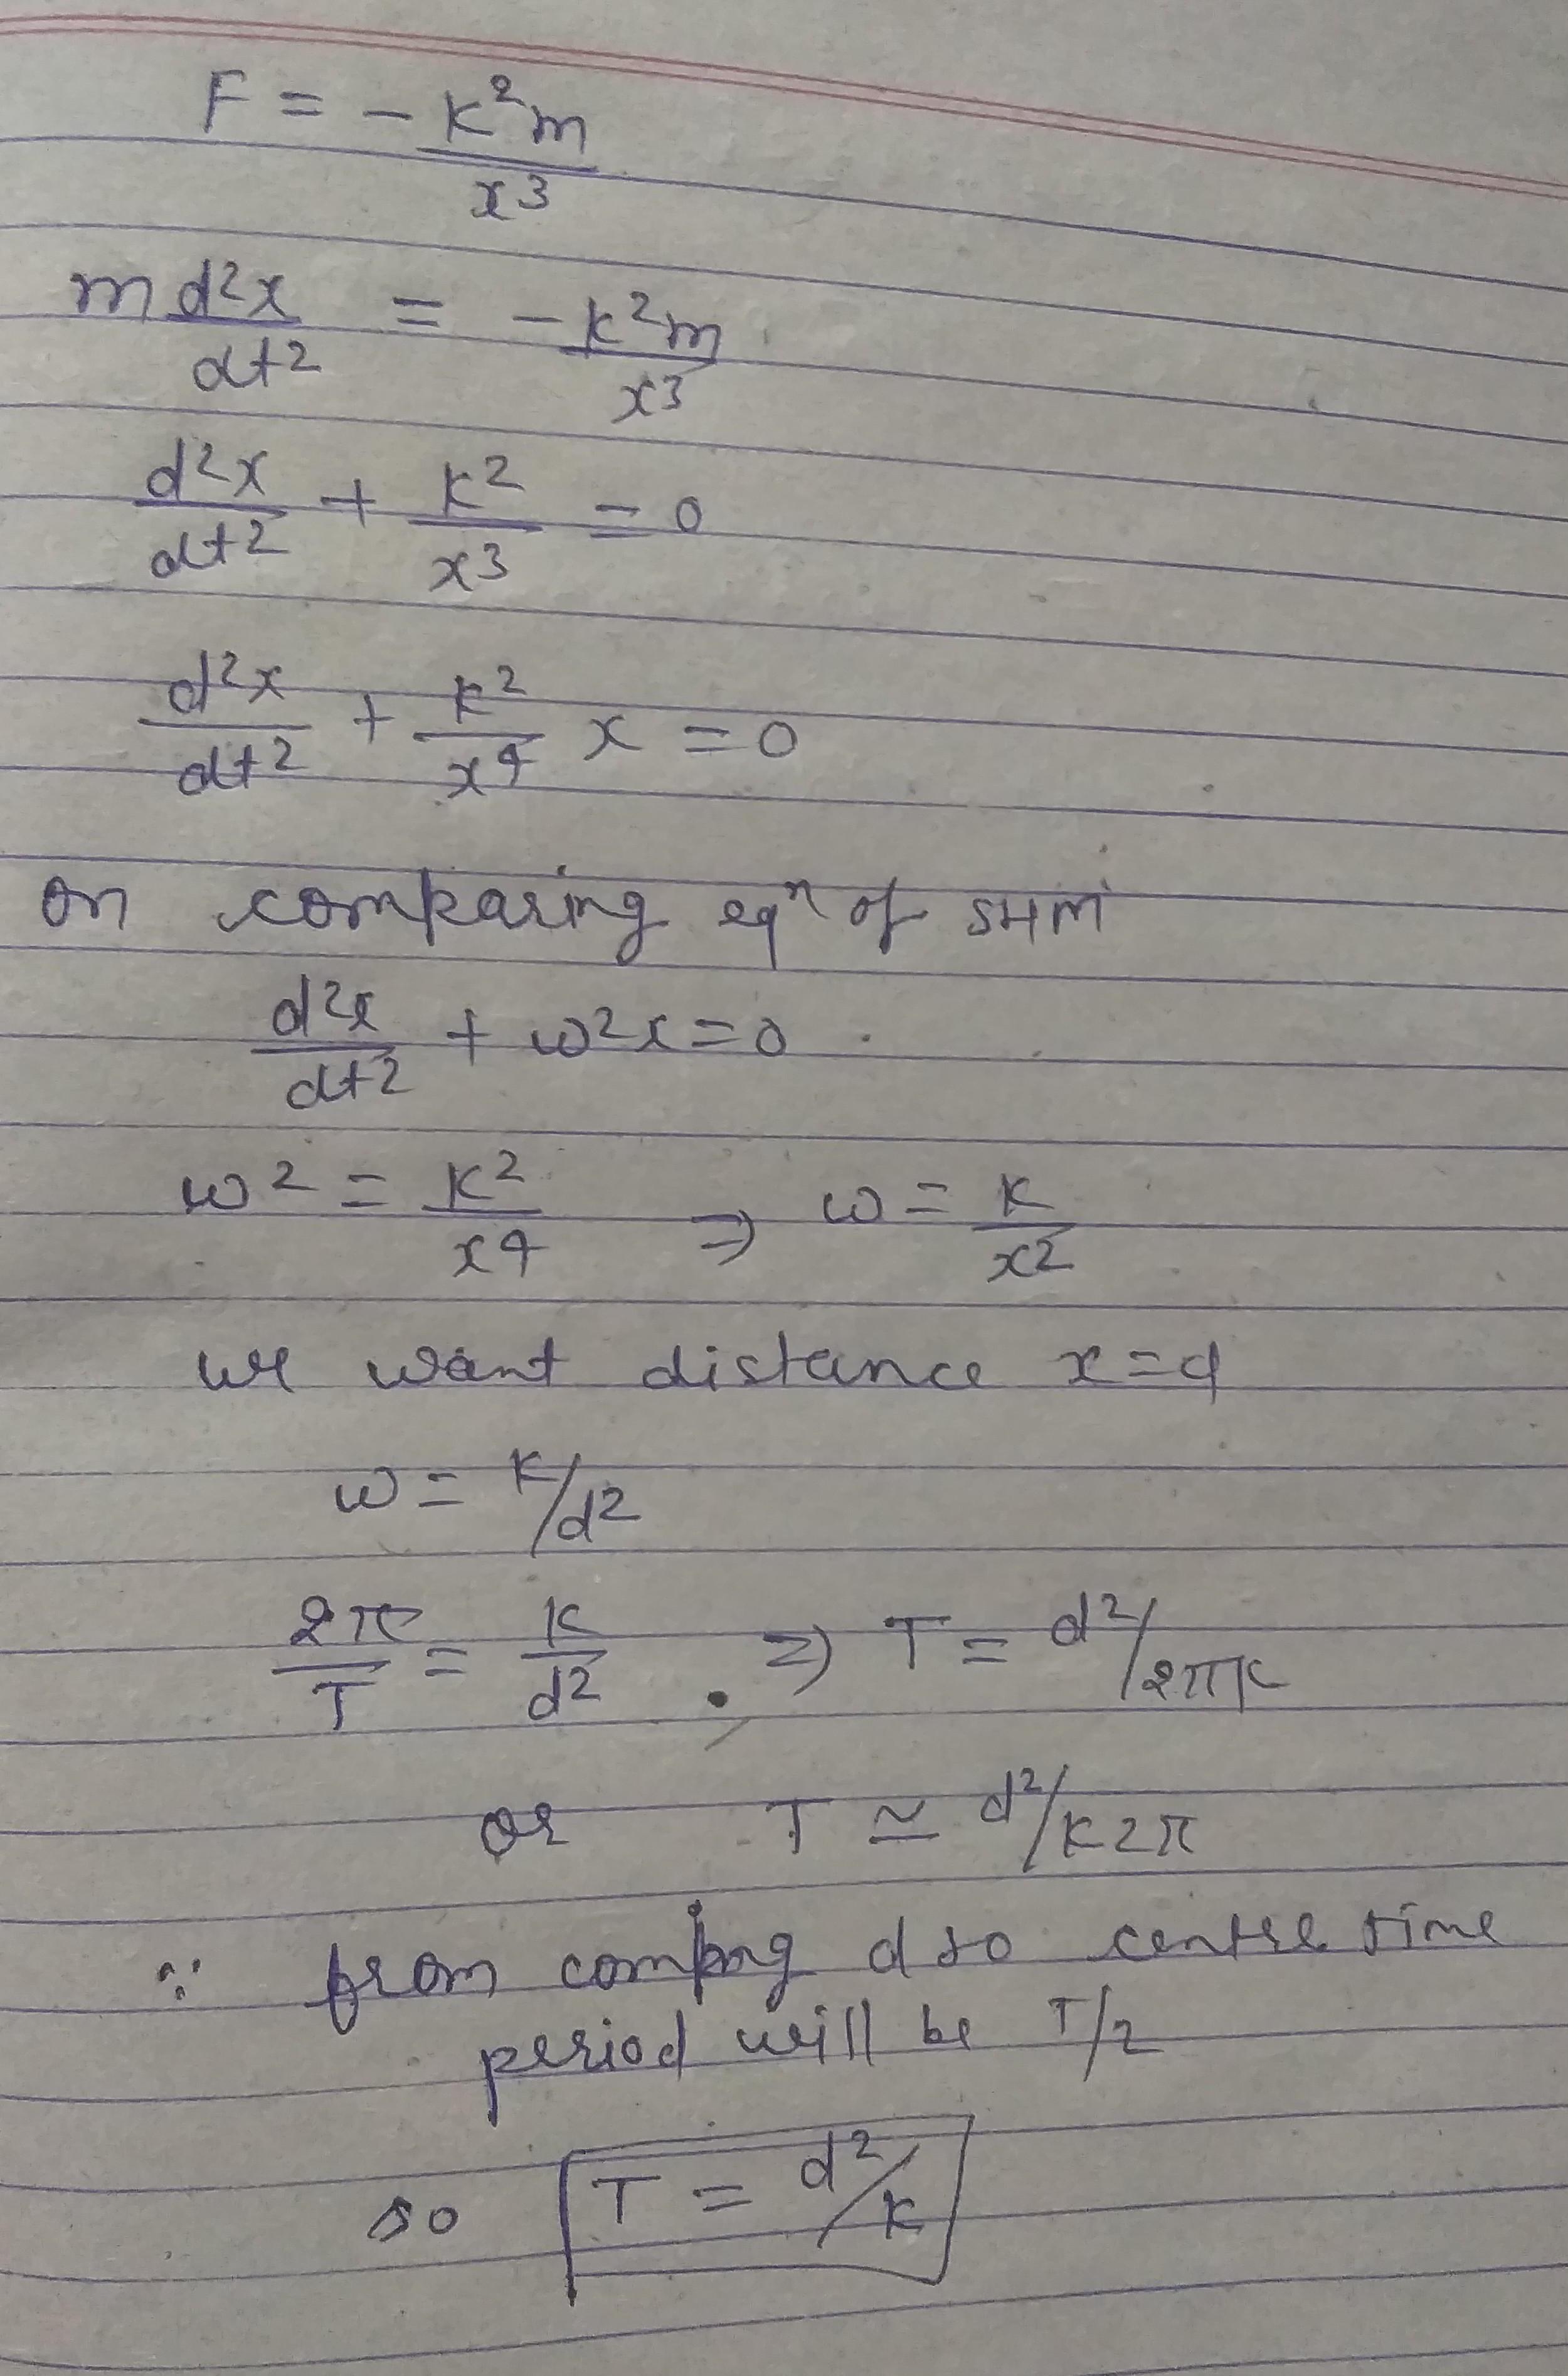 F = - k²m/x³
m d²x/dt² = - k²m/x³
d²x/dt² + k²/x³ = 0
d²x/dt² + k²/x⁴ x = 0
on comparing eqⁿ of SHM
d²x/dt² + ω²x = 0
ω² = k²/x⁴ ⇒ ω = k/x²
we want distance x = d
ω = k/d²
2π/T = k/d² ⇒ T = d²/2πk
or T ≃ d²/k2π
∵ from coming d to centre time
period will be T/2
so T = d²/k